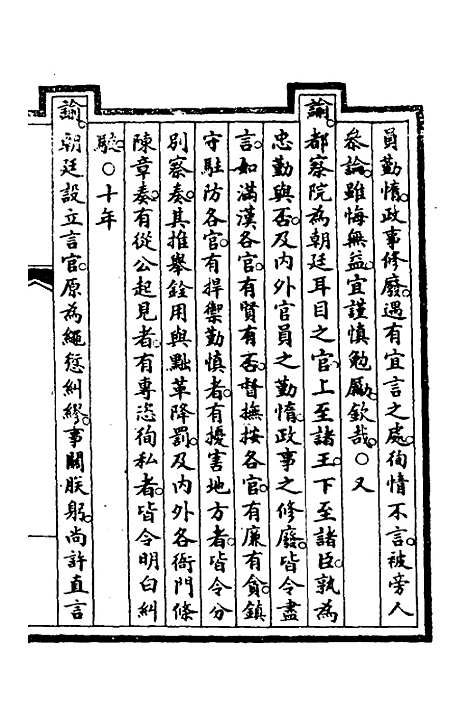 員勤惰政事修廢遇有宜言之處徇情不言被旁人
叅論雖悔無益宜謹慎勉勵欽哉○又
諭都察院為朝廷耳目之官上至諸王下至諸臣孰為
忠勤與否及內外官員之勤惰政事之修廢皆令盡
言如滿漢各官有賢有否督撫按各官有廉有貪鎮
守駐防各官有捍禦勤慎者有擾害地方者皆令分
別察奏其推舉銓用與黜革降罰及內外各衙門條
陳章奏有從公起見者有專恣徇私者皆令明白糾
駮○十年
諭朝廷設立言官原為繩愆糾繆事關朕躬尚許直言